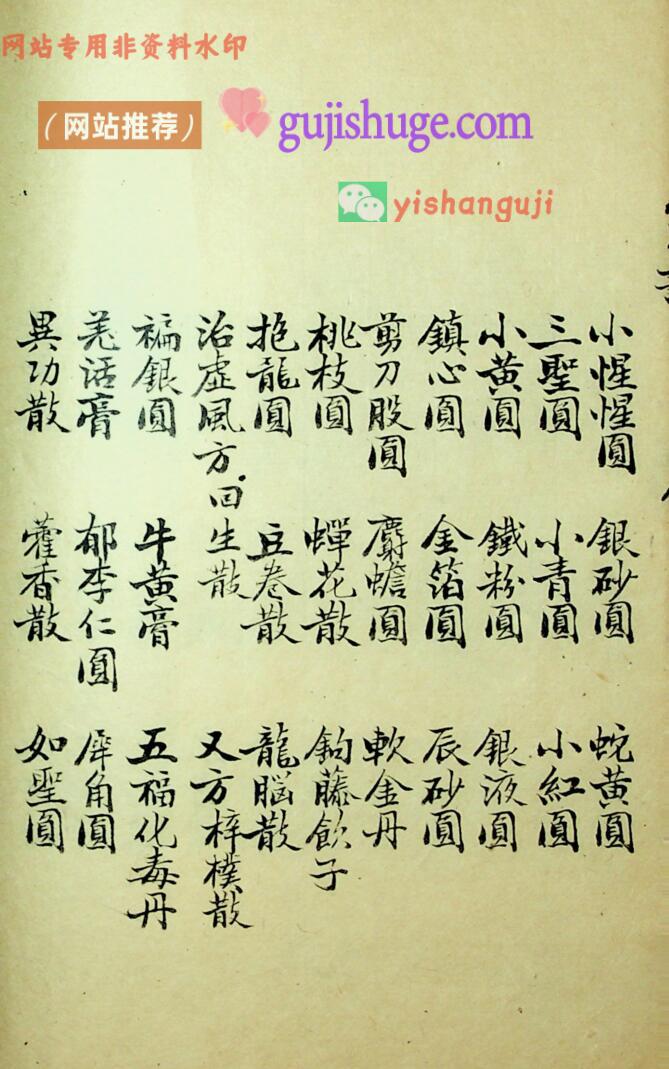 网站专用非资料水印
（网站推荐）
gujishuge.com
yishanguji
小惺惺圓 銀砂圓 蛇黃圓
三聖圓 小青圓 小紅圓
小黃圓 鐵粉圓 銀液圓
鎮心圓 金箔圓 辰砂圓
剪刀股圓 麝蟾圓 軟金丹
桃枝圓 蟬花散 鈎藤飲子
抱龍圓 豆卷散 龍腦散
治虛風方.回生散 又方梓樸散
褊銀圓 牛黃膏 五福化毒丹
羌活膏 郁李仁圓 犀角圓
異功散 藿香散 如聖圓